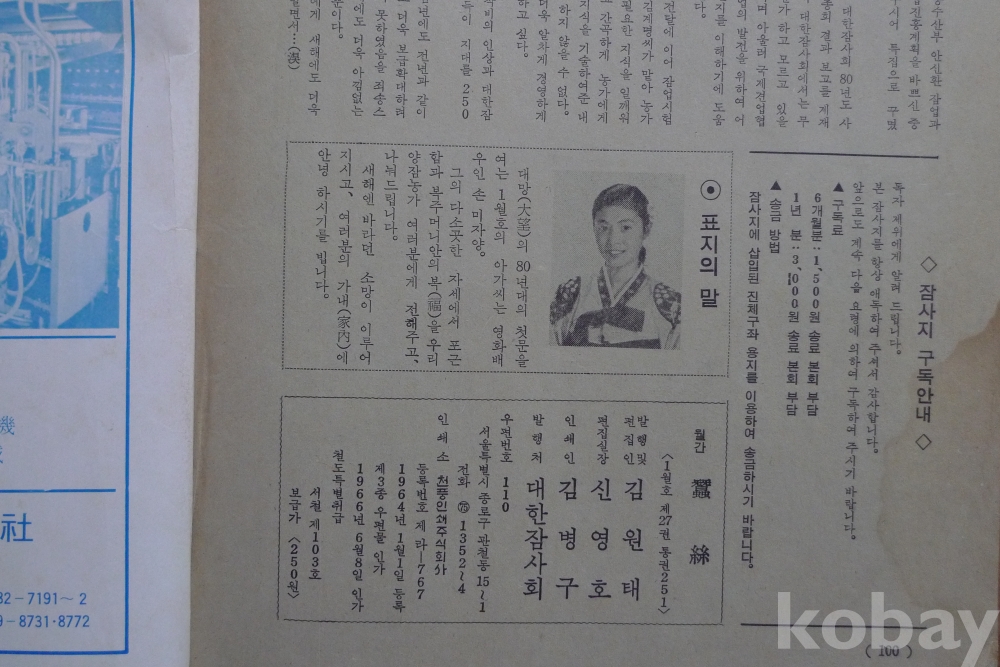 양수산부 안신환 잠업과
잠업진흥계획을 바쁘신 중
주시어 특집으로 꾸몄
대한잠사회 80년도 사
총회 결과 보고를 게재
대한잠사회에서는 무
가 하고 모르고 있을
며 아울러 국제견업협
업의 발전을 위하여 어
지를 이해하기에 도움
다.
전달에 이어 잠업시험
김계명씨가 말아 농가
필요한 지식을 일깨워
고 간곡하게 농가에게
지식을 기술하여준 내
하지 않을 수 없다.
더욱 알차게 경영하게
하고 싶다.
비의 인상과 대한잠
득이 지대를 250
년에도 전년과 같이
더욱 보급확대하려
못하였음을 죄송스
에도 더욱 아낌없는
에게 새해에도 더욱
면서…(漢)
◇ 잠사지 구독안내 ◇
독자 제위에게 알려 드립니다.
본 잠사지를 항상 애독하여 주셔서 감사합니다.
앞으로도 계속 다음 요령에 의하여 구독하여 주시기 바랍니다.
▲ 구독료
6개월분 : 1,500원 송료 본회 부담
1년 분 : 3,000원 송료 본회 부담
▲ 송금 방법
잠사지에 삽입된 진체구좌 용지를 이용하여 송금하시기 바랍니다.
◉ 표지의 말
대망(大望)의 80년대의 첫문을
여는 1월호의 아가씨는 영화배
우인 손 미자양.
그의 다소곳한 자세에서 포근
함과 복주머니안의 복(福)을 우리
양잠농가 여러분에게 전해주고,
나눠드립니다.
새해엔 바라던 소망이 이루어
지시고, 여러분의 가내(家內)에
안녕 하시기를 빕니다.
월간 蠶絲
<1월호 제27권 통권251>
발행및 편집인 김원태
편집실장 신영호
인쇄인 김병구
발행처 대한잠사회
우편번호 110
서울특별시 종로구 관철동 15~1
전화 ㉄ 1352~4
인쇄소 천풍인쇄주식회사
등록번호 제 라―767
1964년 1월1일 등록
제3종 우편물 인가
1966년 6월8일 인가
철도특별취급
서철 제103호
보급가 <250원>
(100)
機
社
32-7191~2
9-8731·8772
kobay